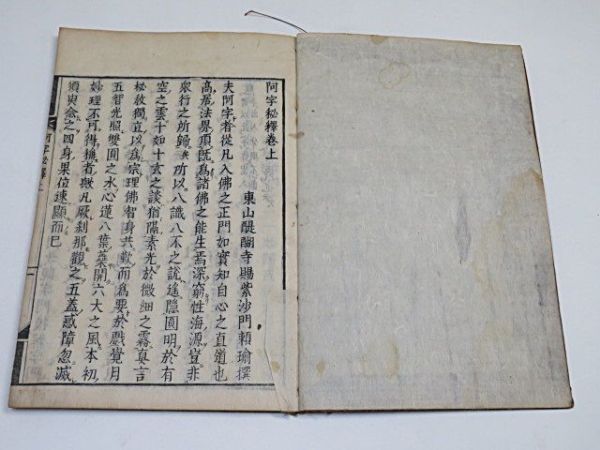 阿字秘釋卷上
東山醍醐寺賜紫沙門賴瑜撰
夫阿字者從凡入佛之正門如實知自心之直道也
高居法界頂既爲諸佛之能生焉深窮性海源豈非
衆行之所歸乎所以八識八不之說遙隱圓明於有
空之雲十如十玄之談猶隔素光於微細之霧眞言
秘敎獨直以爲宗理佛智身共歡而爲要於戲覺月
五智光照雙圓之水心蓮八葉蘂開六大之風本初
妙理不可得撫者歟凡厥刹那觀之五蓋惑障忽滅
須臾念之四身果位速顯而已
阿字秘釋上